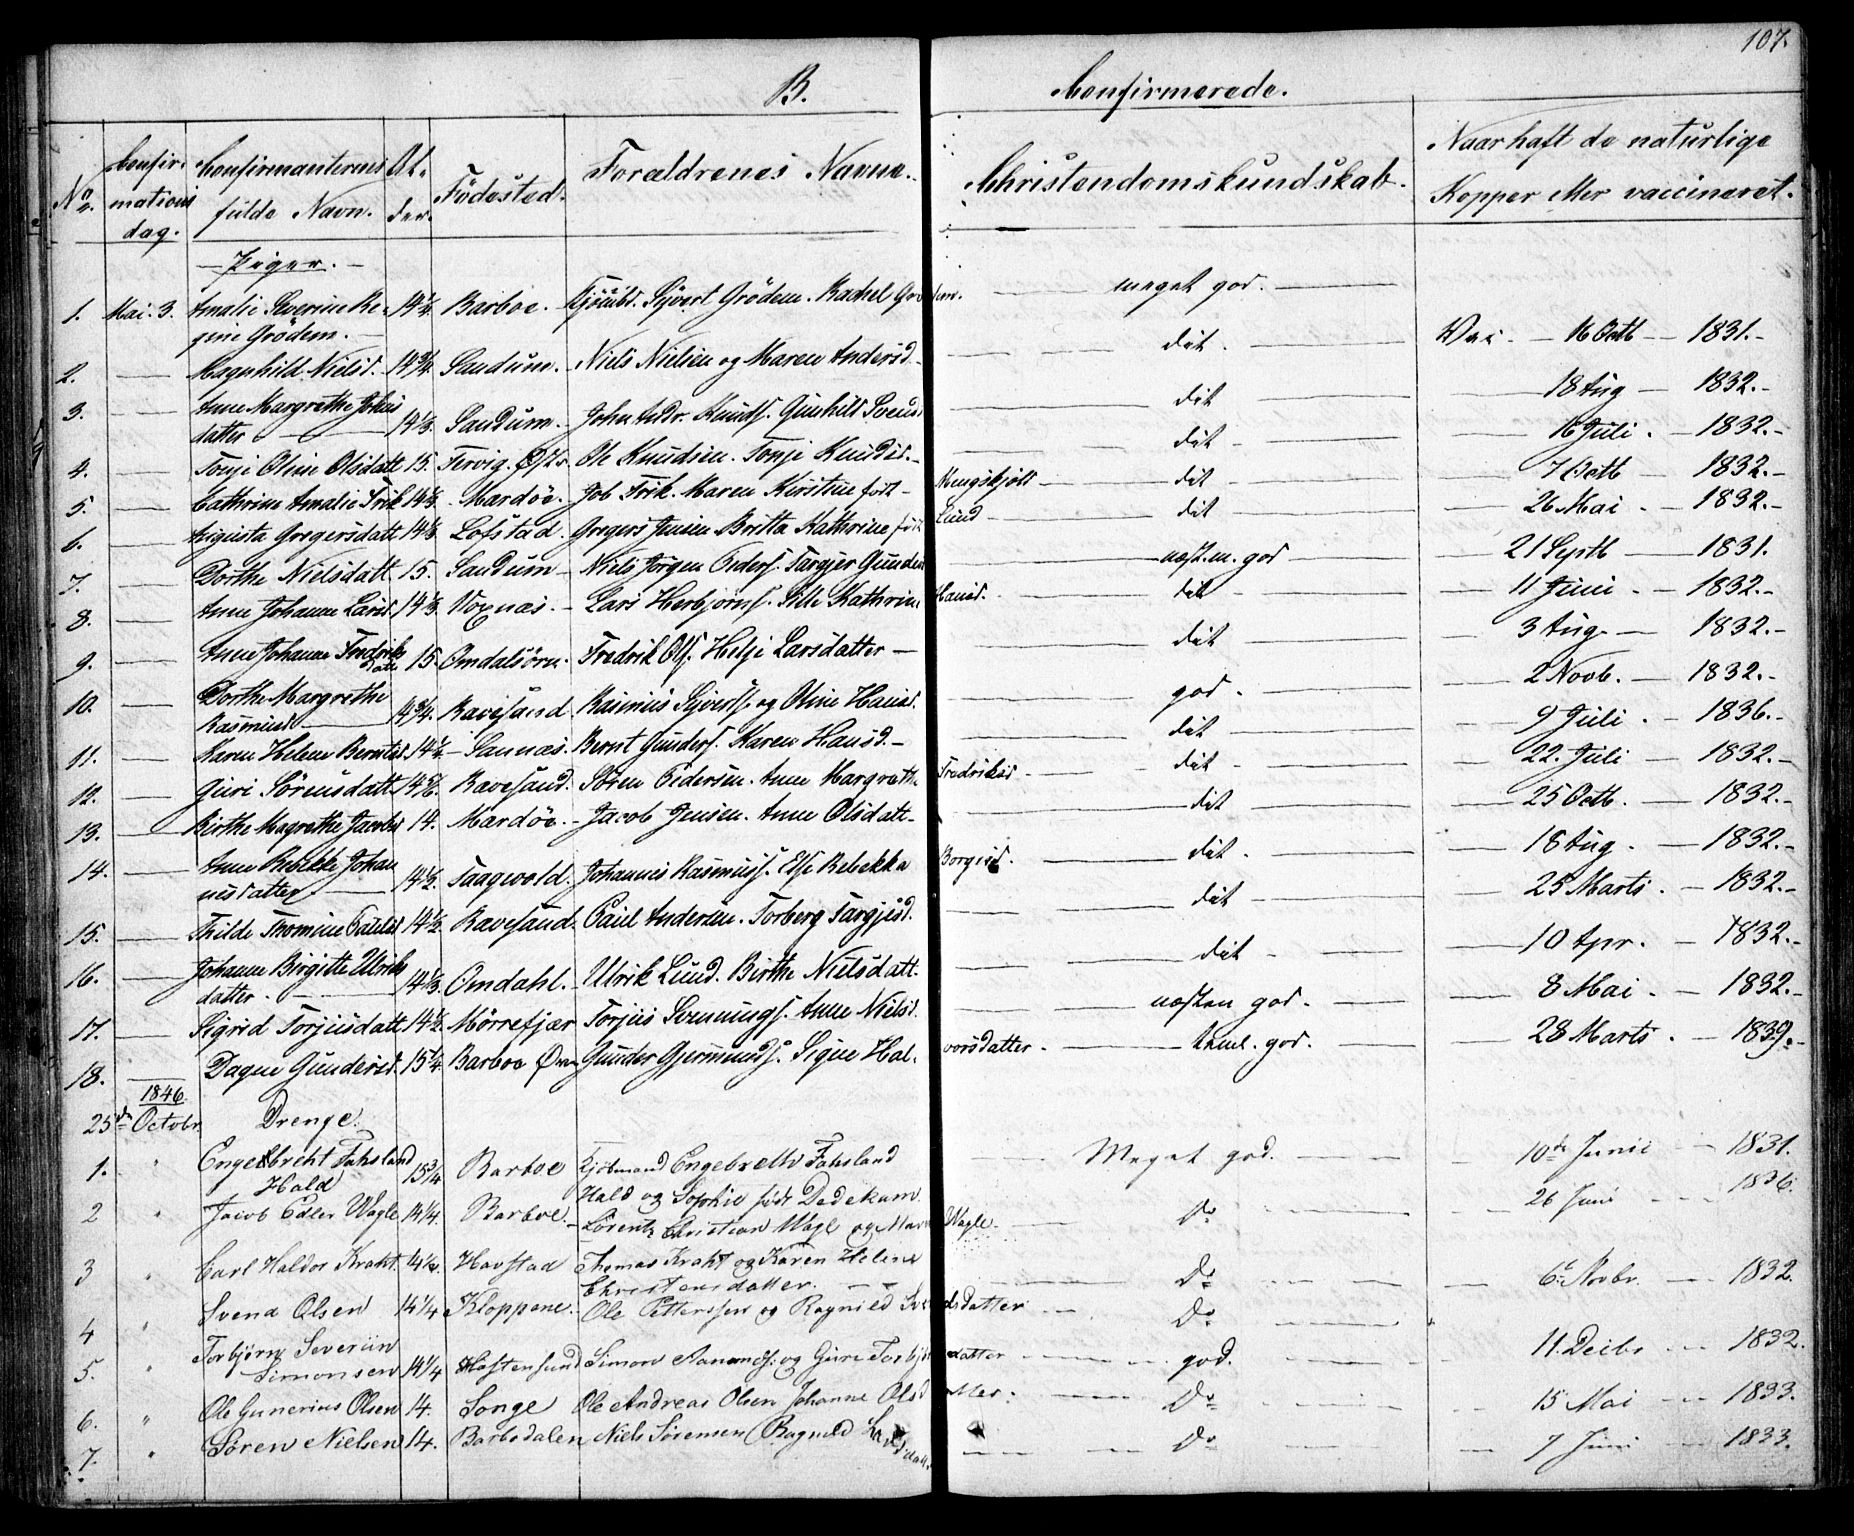 107.
B. Confirmerede.
No. Confirmations dag. Confirmanternes fulde Navn. Alder. Fødested. Forældrenes Navne. Christendomskundskab. Naar haft de naturlige Kopper eller vaccineret.
Piger.
1. Mai. 3. Amalie Severine Regine Grödem. 14 1/4 Barboe. Kjöbmd. Syvert Grödem. Rachel Grödem. meget god. Vac. 16 Octb 1831.
2. Magnhild Nielsd. 14 3/4. Sandum. Niels Nielsen og Maren Andersd. dit. 18 Aug 1832.
3. Anne Margrethe Johns datter 14 1/3. Sandum. John Andr. Knuds. Gunhild Svensd dit 16 Juli. 1832.
4. Tonje Oline Olsdatt 15. Tervig. Ole Knudsen. Tonje Knudsd. dit 7 Octb 1832.
5. Cathrine Amalie Frik 14 1/3. Mardöe. Job Frik. Maren Kirstine født Mengskjölt dit 26 Mai 1832.
6. Augusta Gregersdatt 14 1/3. Lofstad. Gregers Jensen Britta Kathrine født Lund dit 21 Septb 1831.
7. Dorthe Nielsdatt. 15. Sandum Niels Jörgen Peders. Targjer Gundersd næsten god 11 Juni 1832.
8. Anne Johanne Larsd. 14 1/3. Voxnæs. Lars Herbjörns. Sille Kathrine Hansd. dit 3 Aug. 1832.
9. Anne Johanne Fredriks Datt 15. Omdalsörn. Fredrik Ols. Helje Larsdatter dit 2 Novb. 1832.
10. Dorthe Margrethe Rasmusd. 14 3/4. Ravesand. Rasmus Syverts. og Oline Hansd. god. 9 Juli. 1836.
11. Karen Helene Berntsd. 14 1/2 Sannæs. Bernt Gunders. Karen Hansd. dit 22. Juli 1832.
12. Guri Sörensdatt 14 5/6. Ravesand. Sören Pedersen. Anne Margrethe Fredriksd dit 25 Octb. 1832.
13. Birthe Magrethe Jacobsd 14. Mardöe. Jacob Jensen. Anne Olsdatt dit 18 Aug. 1832.
14. Anne Rebekke Johannesdatter 14 1/2. Taagevold. Johannes Rasmuss. Else Rebekka Borgesd. dit. 25 Marts. 1832.
15. Thilde Thomine Paulsd 14 1/2. Ravesand. Paul Andersen. Torberg Targjesd. dit 10 Apr. 1832.
16. Johanne Birgitte Ulriks datter. 14 1/3. Omdahl. Ulrik Lund. Birthe Nielsdatt. dit 8 Mai. 1832.
17. Sigrid Torjusdatt 14 1/2. Mörrefjær Torjus Svennungs. Anne Nielsd. næsten god. 28 Marts 1839.
18. Dagne Gundersd. 15 1/4. Barboe Gunder Gjermunds. Signe Halvorsdatter. teml. god.
1846
25de Octobr. Drenge.
1. " Engelbreht Fahsland Hald 15 3/4 Barboe Kjöbmand Engebreth Fahsland Hald og Sophie født Dedekam. Meget god. 10de Junii 1831.
2 " Jacob Edler Wagle 14 1/4 Barboe. Lorentz Christian Wagle og Maren Wagle. Do 26 Juni 1836.
3 " Carl Haldor Kraht. 14 1/2. Havstad Thomas Kraht og Karen Helene Christensdatter. Do 6te Novbr. 1832.
4 " Svend Olsen 14 1/4 Kloppene. Ole Pettersen og Ragnild Svendsdatter Do
5. " Torbjörn Severin Simonsen 14 1/4 Hastensund Simon Aanonds. og Guri Torbjörnsdatter god. 11. Decbr 1832.
6. " Ole Gunerius Olsen 14. Songe Ole Andreas Olsen Johanne Olsdatter. Do 15 Mai 1833.
7. " Sören Nielsen 14. Barbodalen Niels Sörensen Ragnild Larsdatt. Do 7 Juni 1833.